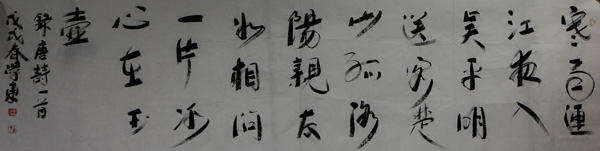 寒雨連
江夜入
吳平明
送客楚
山孤洛
陽親友
如相問
一片冰
心在玉
壺
錄唐詩一首
戊戌春學東